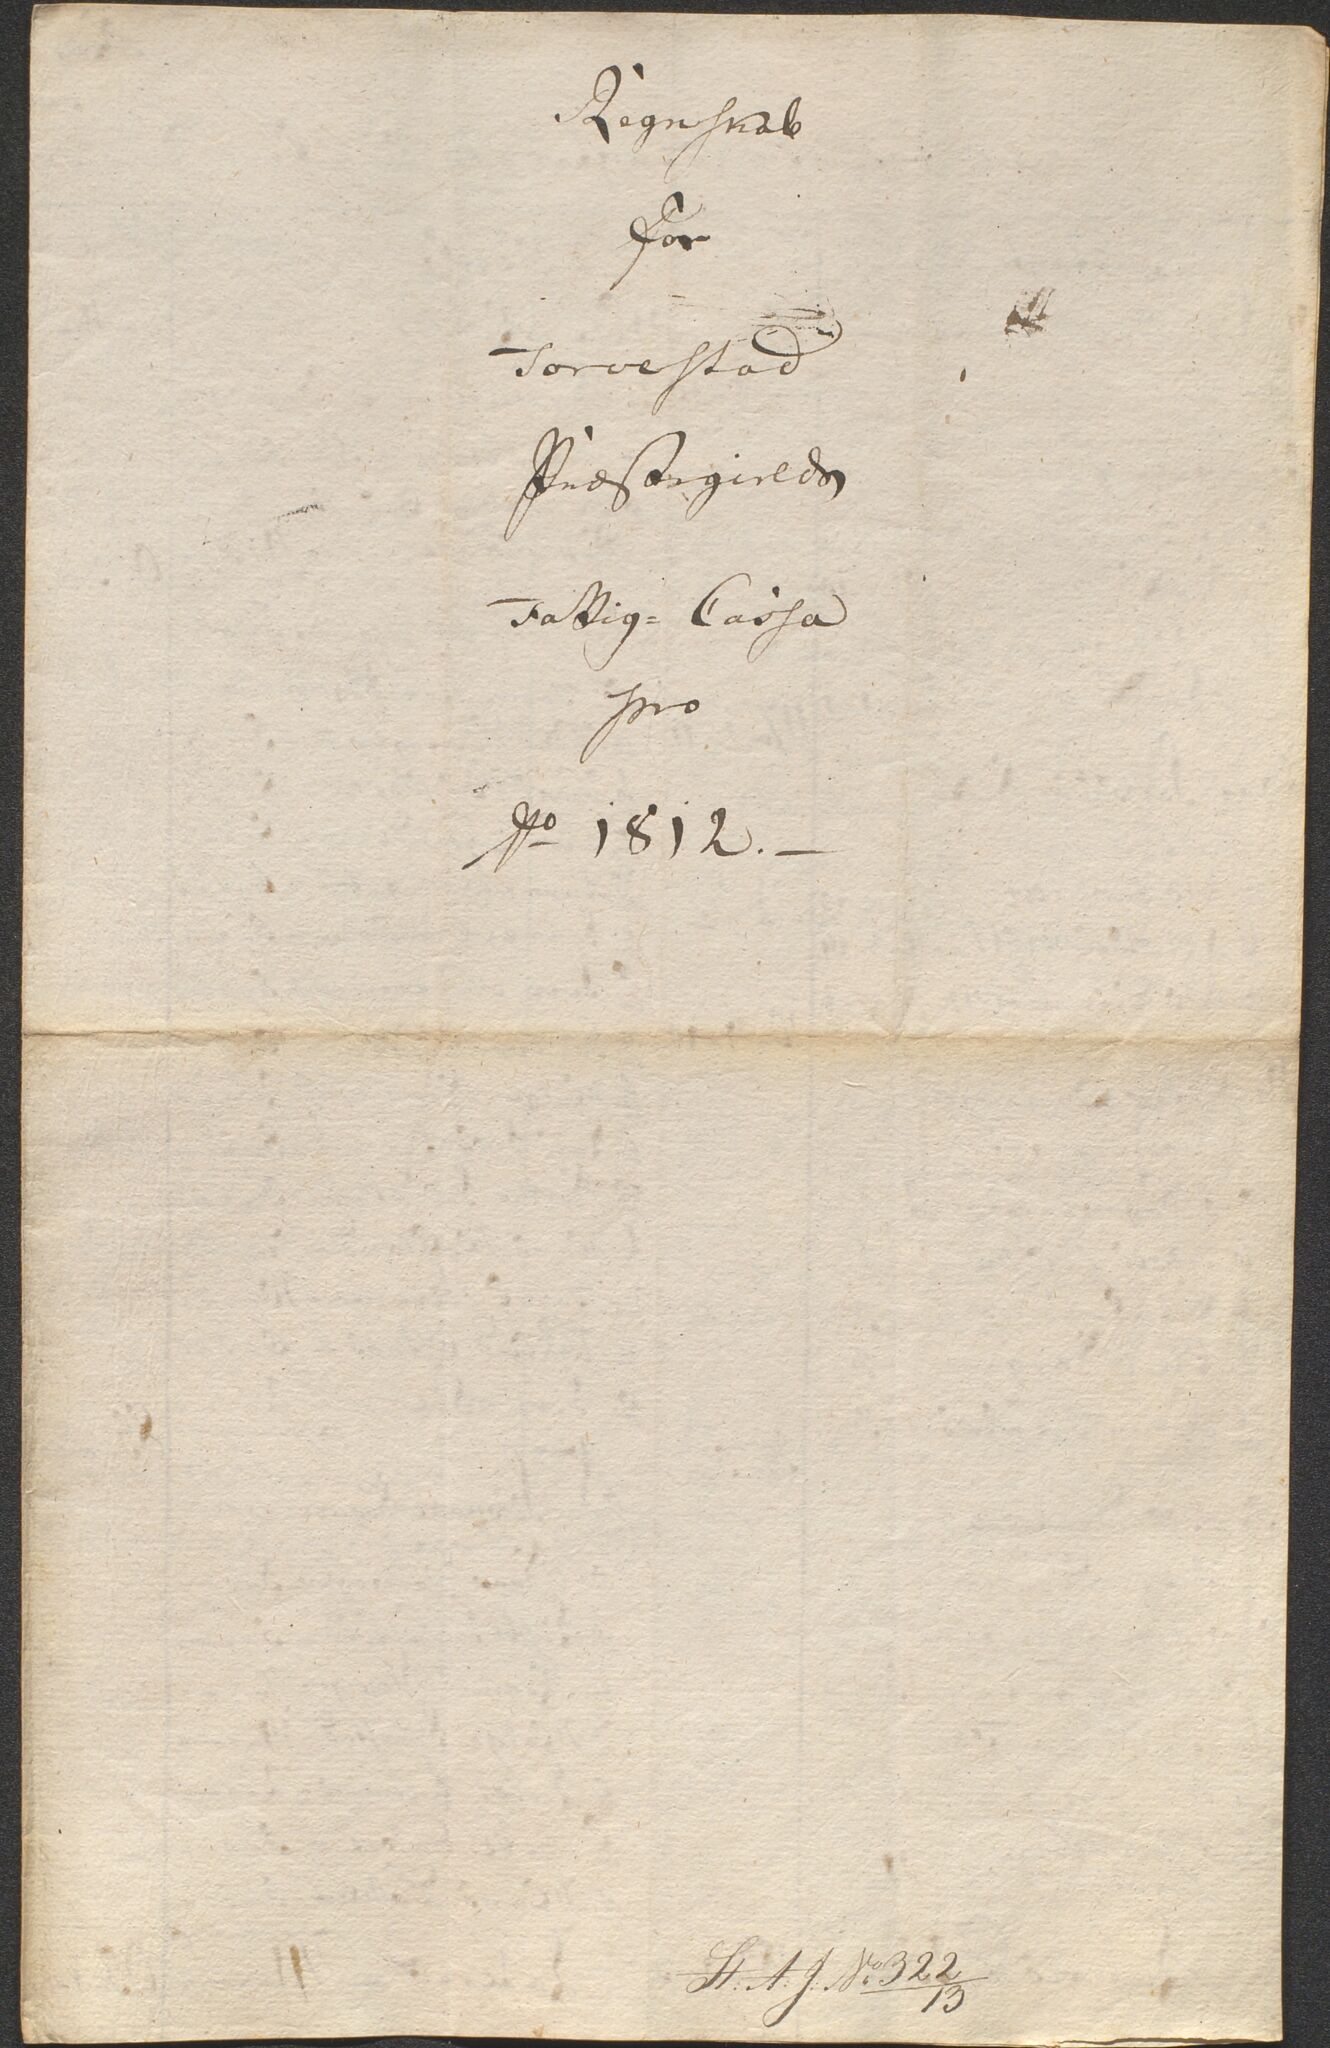 Regnskab
for
Torvestad
Præstegields
Fattig= Cassa
pro
Ao 1812. —
St. A. J. No 322/13